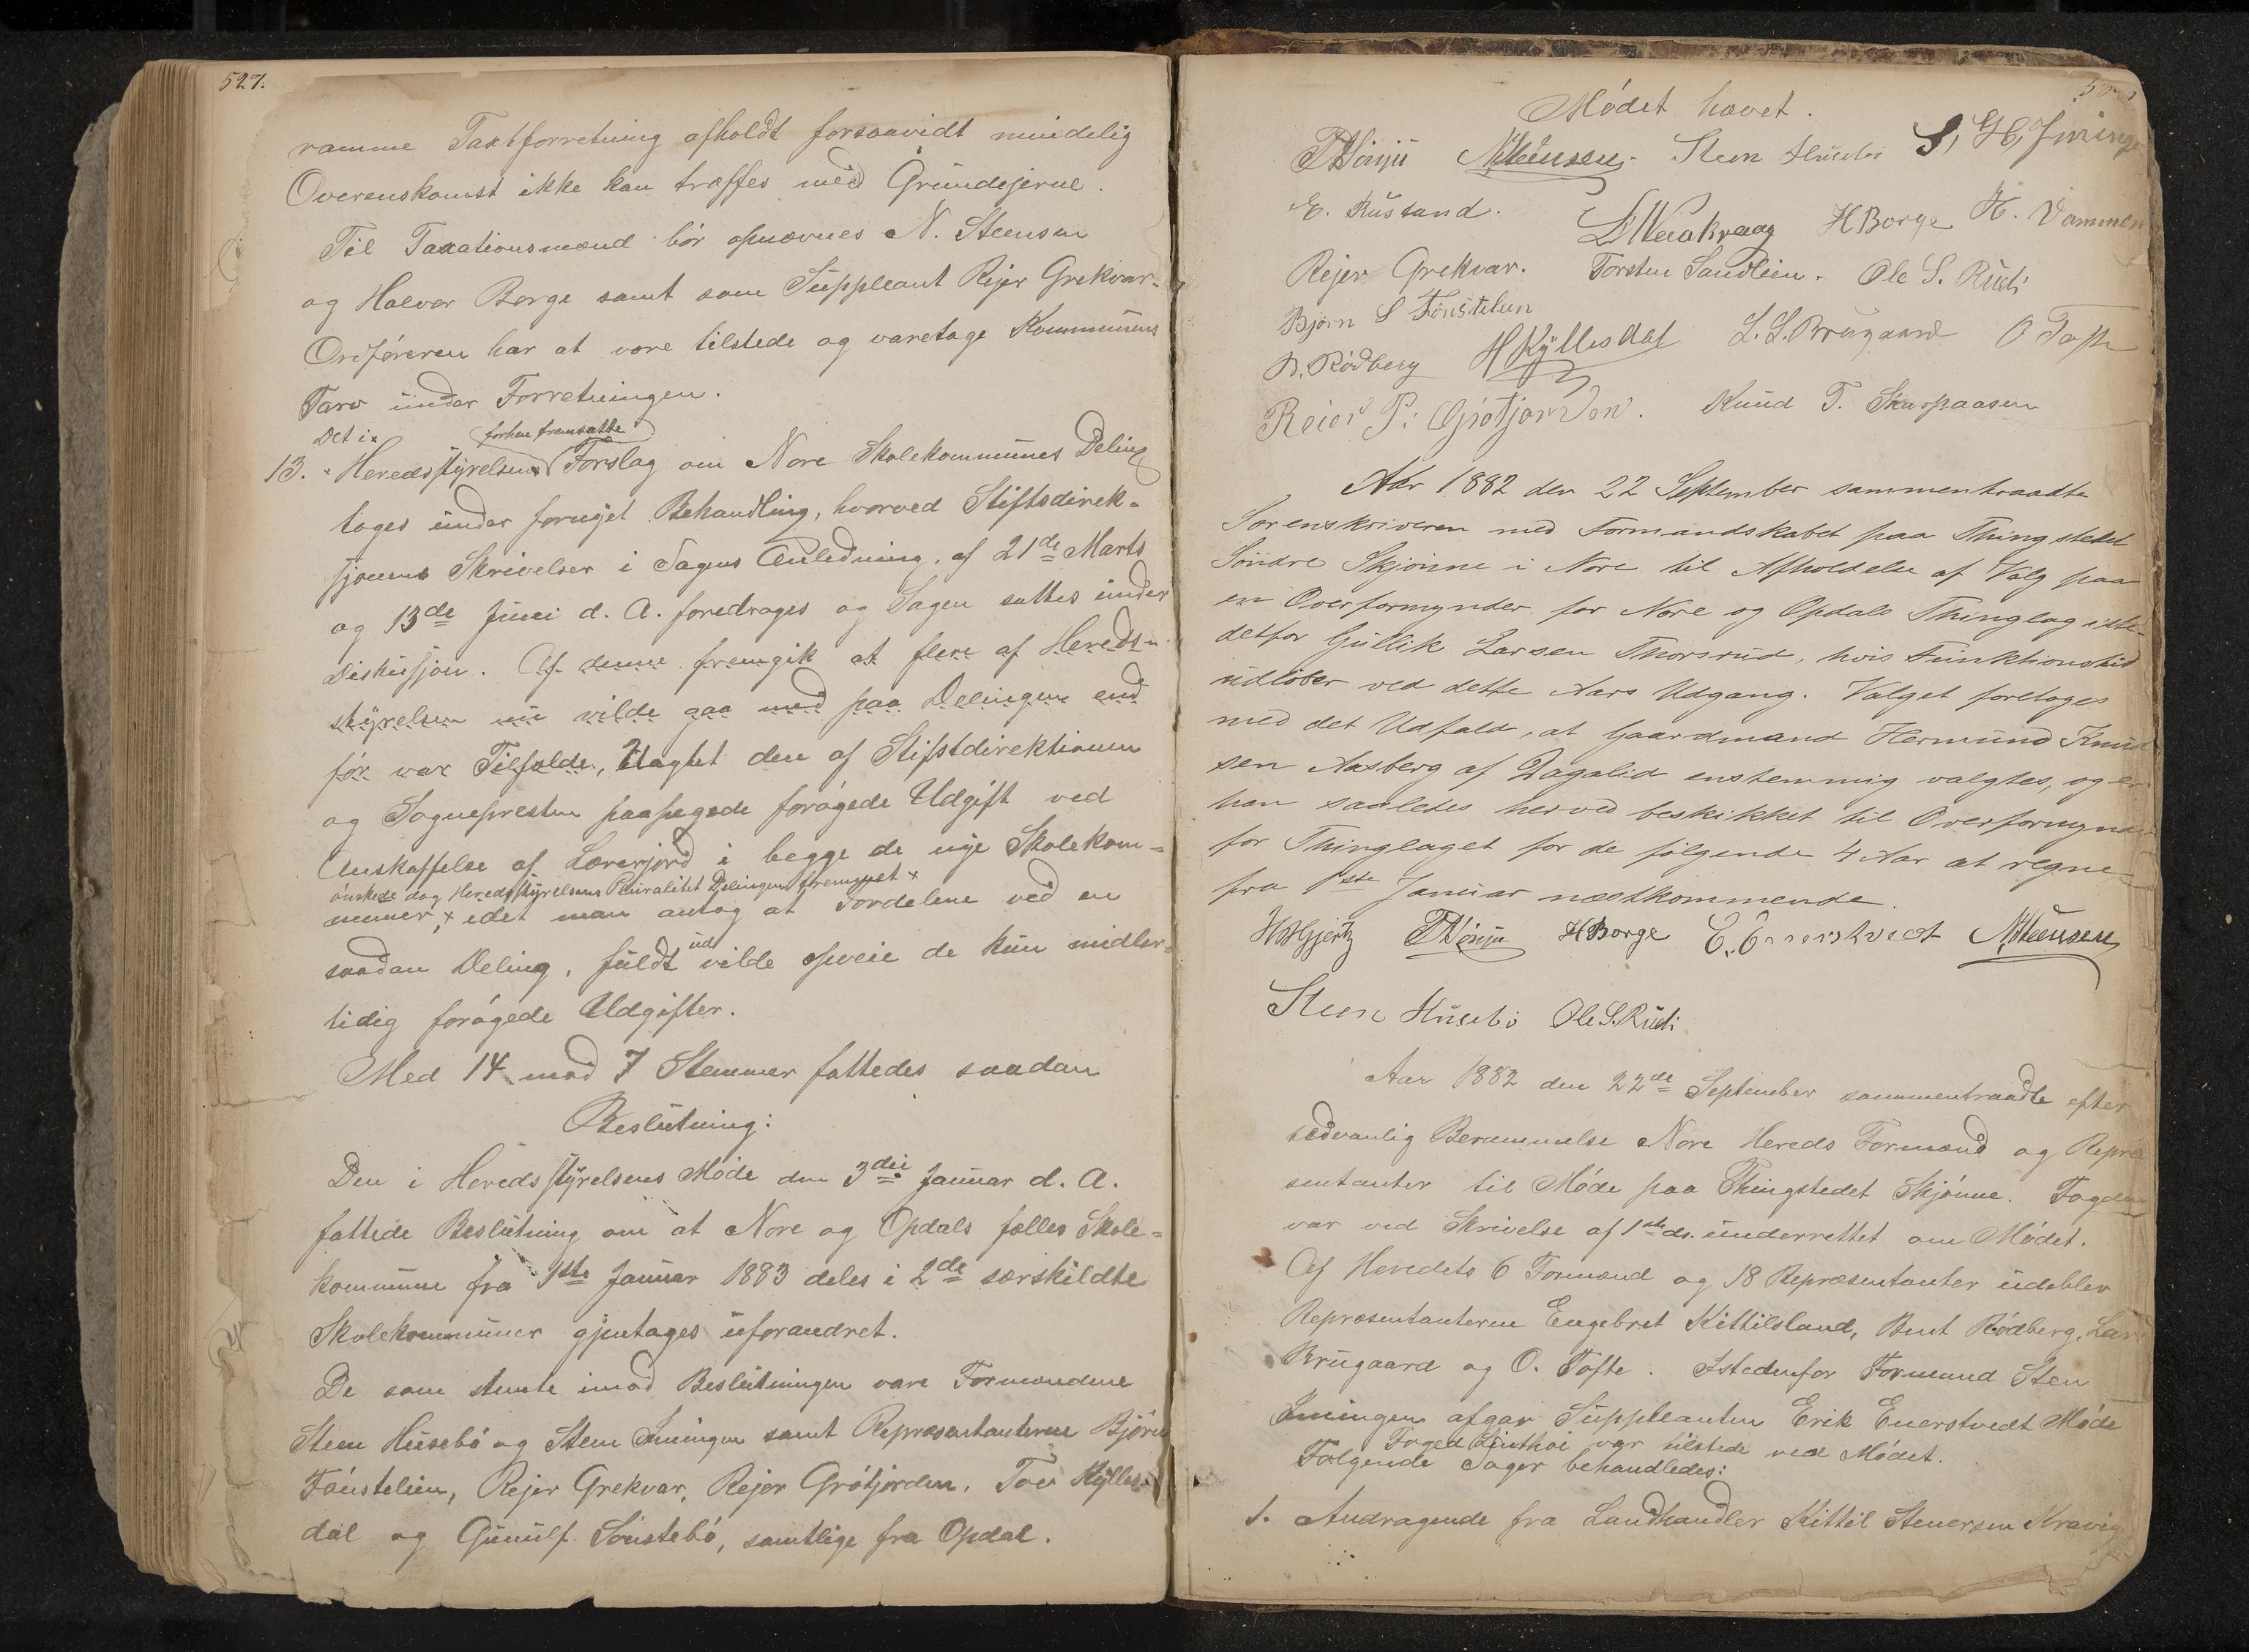 527.
ramme Taxtforretning afholdt forsaavidt mindelig
Overenskomst ikke kan træffes med Grundejerne.
Til Taxationsmænd bör opnævnes N. Steensen
og Halvor Borge samt som Suppleant Rejer Grekvar.
Ordföreren har at være tilstede og varetage Kommunens
Tarv under Forretningen.
Det i x forhen fremsatte
13. x Heredsstyrelsen Forslag om Nore Skolekommunes Deling
toges under fornyet Behandling, hvorved Stiftsdirek-
sjonens Skrivelser i Sagens Anledning, af 21de Marts
og 13de Juni d. A. foredroges og Sagen sattes under
Diskussjon. Af denne fremgik at flere af Hereds-
styrelsen nu vilde gaa med paa Delingen end
för var Tilfælde, Uagtet den af Stiftsdirektionen
og Sognepresten paapegede forögede Udgift ved
Anskaffelse af Lærerjord i begge de nye Skolekom-
önskede dog Heredsstyrelsens Pluralitet Delingen fremmet x
muner, x idet man antog at Fordelene ved en
saadan Deling, fuldt ud vilde opveie de kun midler-
tidig forögede Udgifter.
Med 14 mod 7 Stemmer fattedes saadan
Beslutning:
Den i Heredsstyrelsens Möde den 3die Januar d. A.
fattede Beslutning om at Nore og Opdals fælles Skole-
kommune fra 1ste Januar 1883 deles i 2de særskildte
Skolekommuner gjentages uforandret.
De som stemte imod Beslutningen vare Formændene
Steen Husebö og Steen Juningen samt Repræsentanterne Björn
Fönstelien, Rejer Grekvar, Rejer Grötjorden, Tov Kylles-
dal og Gunulf Sönstebö, samtlige fra Opdal.
Mödet hævet.
T Hönju NSteensen. Steen Husebö S. H. Juninge
E. Russand. HBorge H. Vammen
Rejer Grekvar. Torsten Sandlien. Ole S. Rudi
Björn S Fönstelien
B. Rödberg H Kyllesdal L. L. Brugaard O Tofte
Reier P: Grötjorden. Knud T. Skarpaasen
Aar 1882 den 22 September sammentraadte
Sorenskriveren med Formandskabet paa Thingstedet
Söndre Skjönne i Nore til Afholdelse af Valg paa
en Overformynder for Nore og Opdals Thinglag iste-
detfor Gullik Larsen Thorsrud, hvis Funktionstid
udlöber ved dette Aars Udgang. Valget foretoges
med det Udfald, at Gaardmand Hermund Knud
sen Aasberg af Dagalid enstemmig valgtes, og er
han saaledes herved beskikket til Overformynder
for Thinglaget for de fölgende 4 Aar at regne
fra 1ste Januar næstkommende.
HHGjertz T Hönju HBorge E. Enerstvedt NSteensen
Steen Husebö Ole S. Rudi
Aar 1882 den 22de September sammentraadte efter
sedvanlig Berammelse Nore Hereds Formænd og Repræ
sentanter til Möde paa Thingstedet Skjönne. Fogden
var ved Skrivelse af 1ste ds. underrettet om Mödet.
Af Heredets 6 Formænd og 18 Repræsentanter udeblev
Repræsentanterne Engebret Kittilsland, Bent Rödberg, Lars
Brugaard og O. Tofte. Istedenfor Formand Sten
Juningen afgav Suppleanten Erik Enerstvedt Möde
Foged Linthoi var tilstede ved Mödet.
Fölgende Sager behandledes:
1. Andragende fra Landhandler Kittil Stenersen Kravig